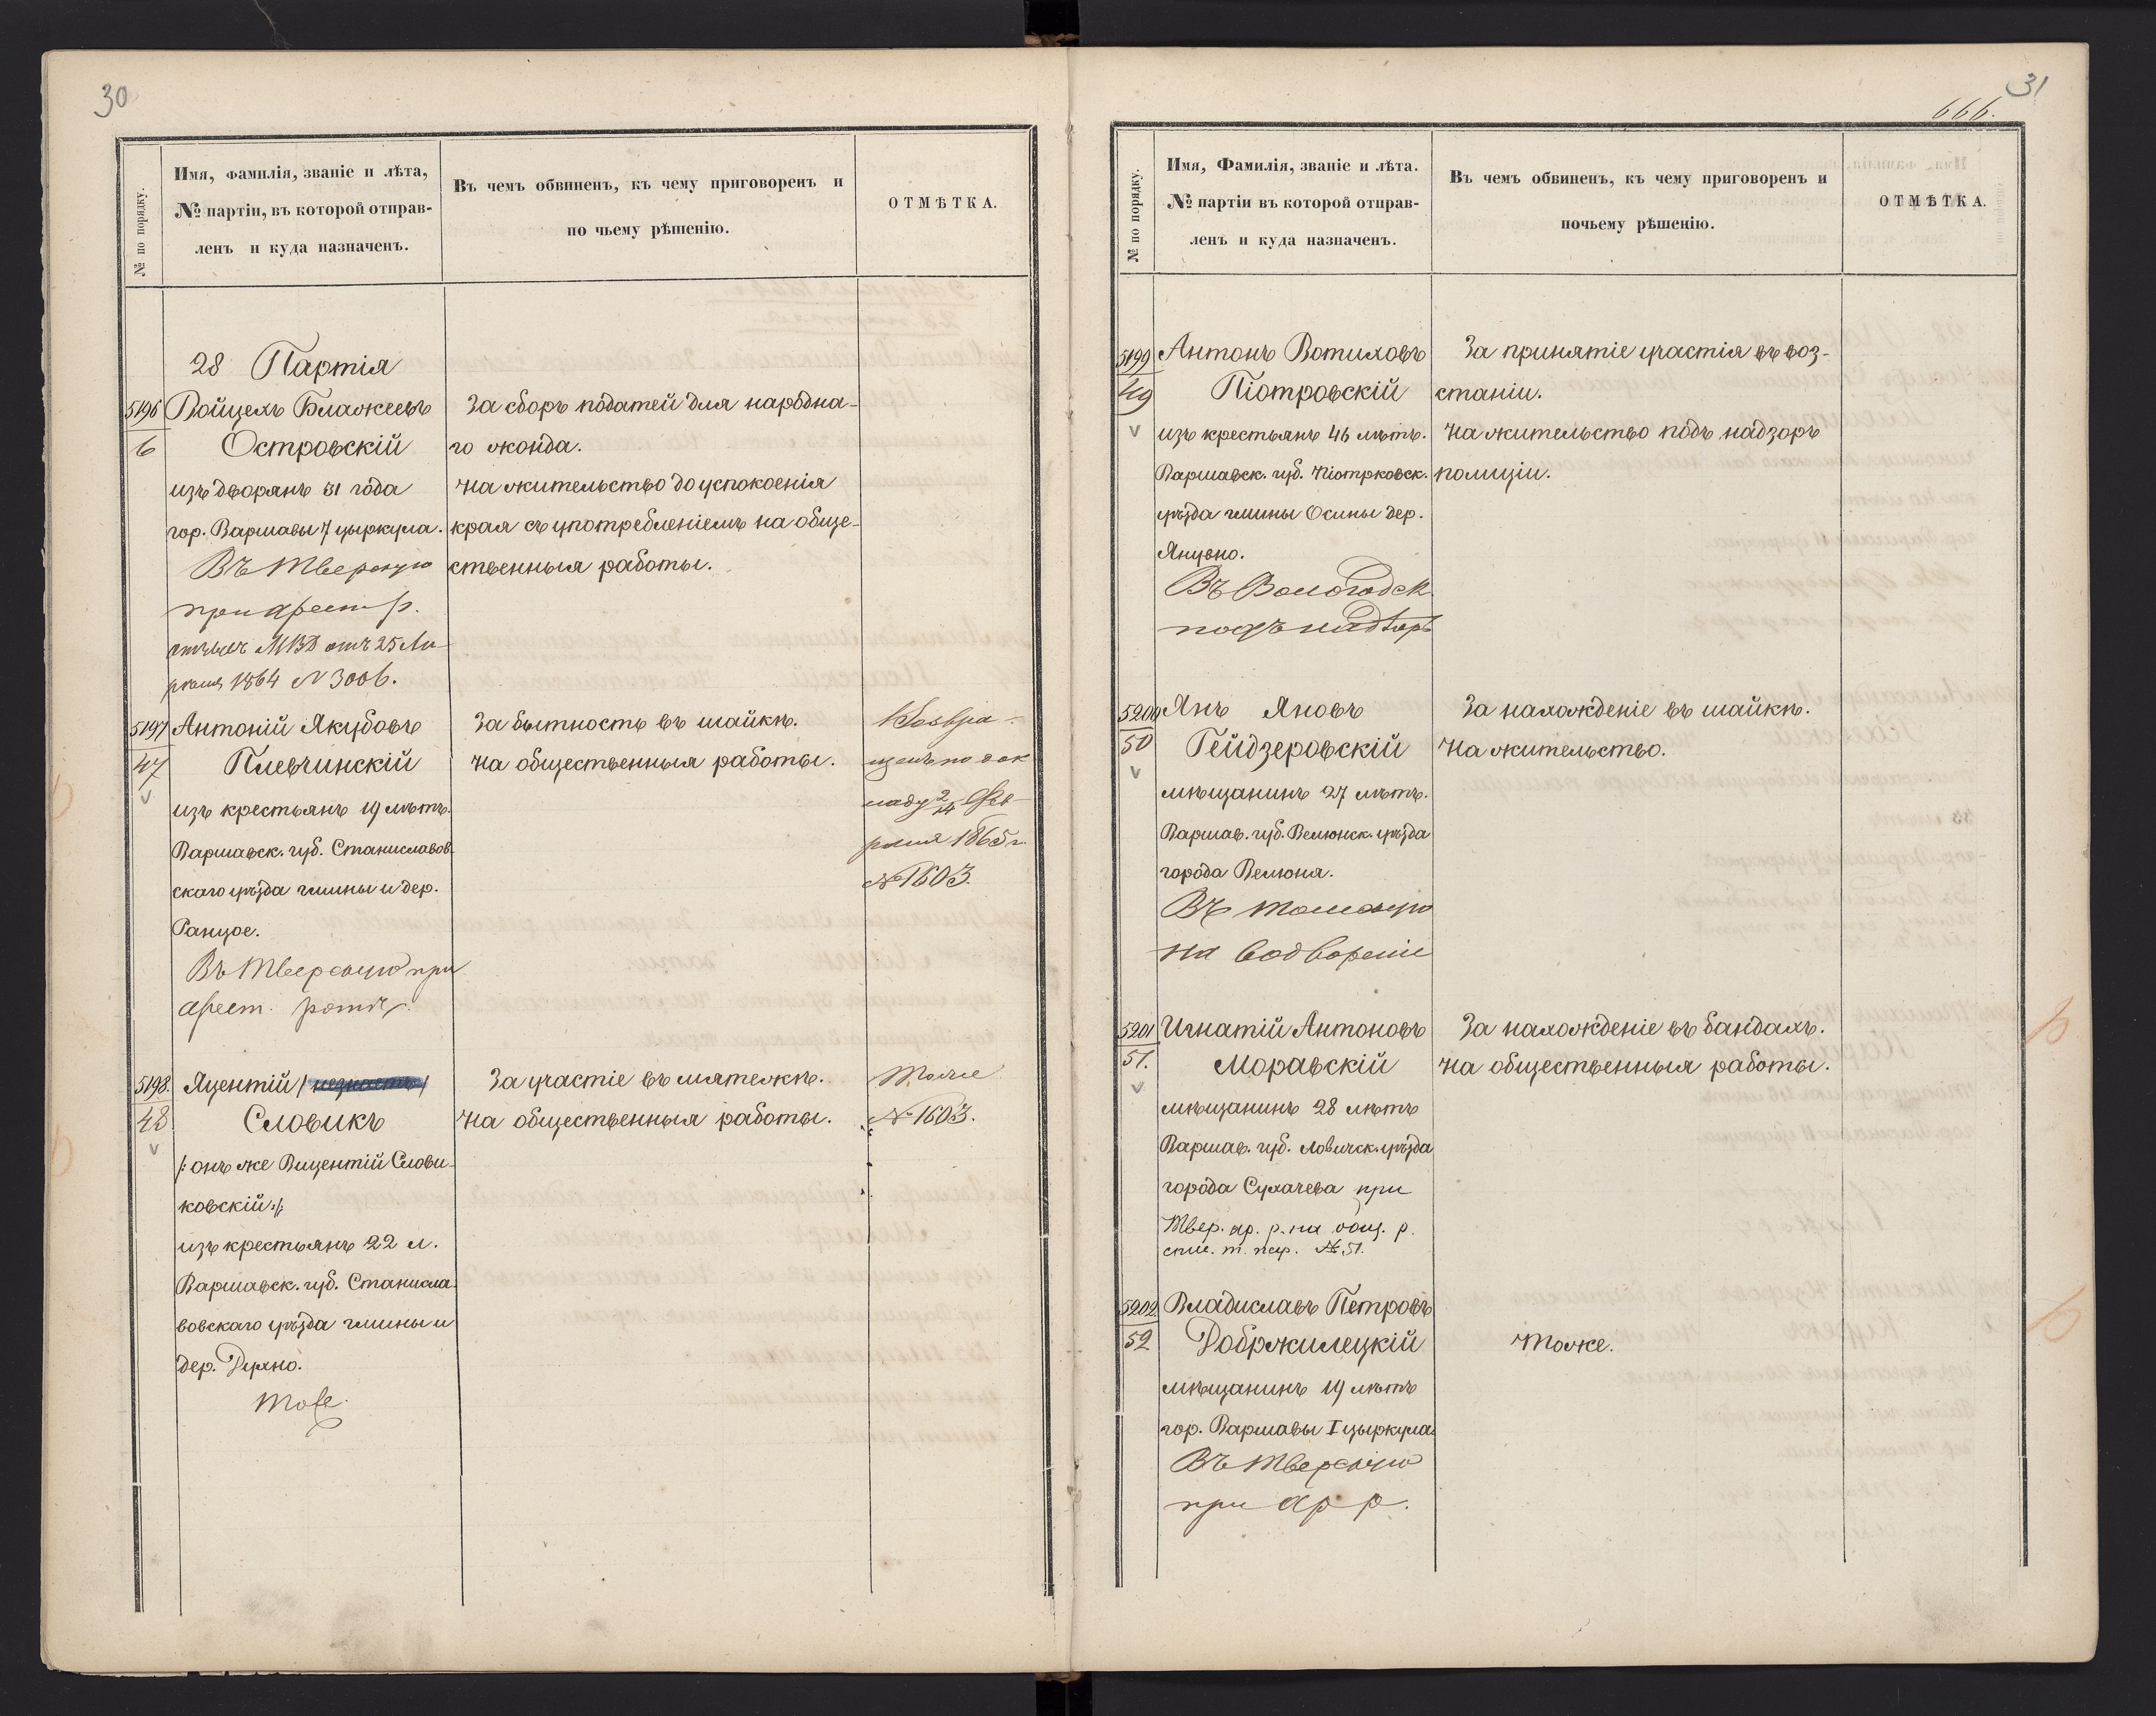 30
№ по порядку.
Имя, фамилія, званіе и лѣта,
№ партіи, въ которой отправ-
ленъ и куда назначенъ.
Въ чемъ обвиненъ, къ чему приговоренъ и
по чьему рѣшенію.
ОТМѢТКА.
28 Партія
5196
6
Войцехъ Блажеевъ
Островскій
изъ дворянъ 31 года
гор. Варшавы 7 цыркула.
Въ Тверскую
при арест. р.
М В Д отъ 25 Ап-
рѣля 1864 N 3006.
За сборъ податей для народна-
го жонда.
На жительство до успокоенія
края съ употребленіемъ на обще-
ственныя работы.
5197
47
Антоній Якубовъ
Плевчинскій
изъ крестьянъ 19 лѣтъ.
Варшавск. губ. Станиславов-
скаго уѣзда гмины и дер.
Ранцое.
Въ Тверскую при
арест. ротѣ.
За бытность въ шайкѣ.
На общественныя работы.
Возвра-
щенъ по док
ладу 2/14 Фев-
раля 1865 г.
№ 1603.
5198.
48
Яцентій
Словикъ
/: онъ же Вицентій Слови-
ковскій :/
изъ крестьянъ 22 л.
Варшавск. губ. Станисла-
вовскаго уѣзда гмины и
дер. Духно.
Тоже.
За участіе въ мятежѣ.
На общественныя работы.
Тоже
№ 1603.
31
666.
№ по порядку.
Имя, Фамилія, званіе и лѣта.
№ партіи въ которой отправ-
ленъ и куда назначенъ.
Въ чемъ обвиненъ, къ чему приговоренъ и
почьему рѣшенію.
ОТМѢТКА.
5199
49
Антонъ Вотиховъ
Піотровскій
изъ крестьянъ 46 лѣтъ.
Варшавск. губ. Піотрковск.
уѣзда гмины Осины дер.
Янувно.
Въ Вологодск.
подъ надзоръ
За принятіе участія въ воз-
станіи.
На жительство подъ надзоръ
полиціи.
5200
50
Янъ Яновъ
Гейдзеровскій
мѣщанинъ 27 лѣтъ.
Варшав. губ. Велюнск. уѣзда
города Велюня.
Въ Томскую
на водвореніе
За нахожденіе въ шайкѣ.
На жительство.
5201
51.
Игнатій Антоновъ
Моравскій
мѣщанинъ 28 лѣтъ
Варшав. губ. Ловичск. уѣзда
города Сухачева при
Твер. ар. р. на общ. р.
№ 51.
За нахожденіе въ бандахъ.
На общественныя работы.
5202
52
Владиславъ Петровъ
Добржилецкій
мѣщанинъ 19 лѣтъ
гор. Варшавы I цыркула.
Въ Тверскую
при ар р.
Тоже.